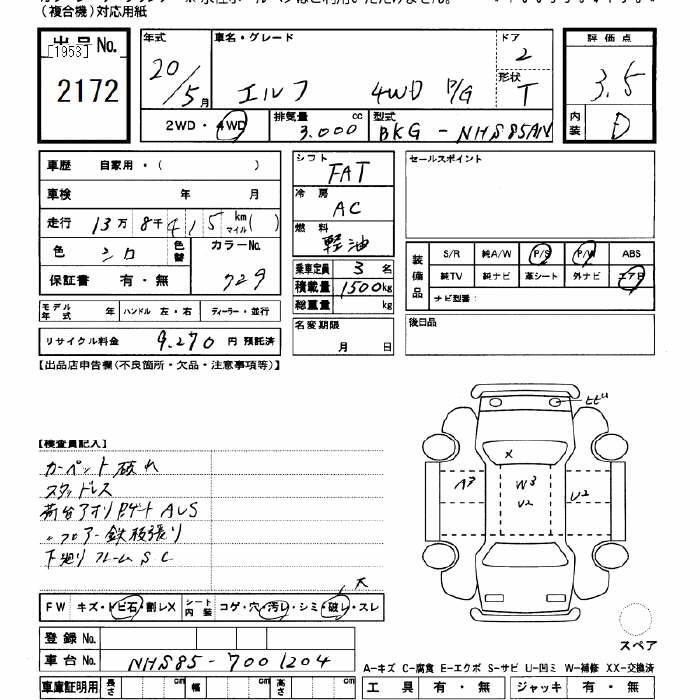 （複合機）対応用紙
出品No.
[1953]
2172
年式
20/5月
車名・グレード
エルフ 4WD P/G
ドア
2
形状
T
評価点
3.5
内装
D
2WD・4WD
排気量 3.000 cc
型式
BKG-NHS85AN
車歴 自家用・（ ）
車検 年 月
走行 13万8千415 km マイル( )
色 シロ
色替
カラーNo.
729
保証書 有・無
モデル年式 年 ハンドル 左・右 ディーラー・並行
リサイクル料金 9.270 円 預託済
シフト
FAT
冷房
AC
燃料
軽油
乗車定員 3 名
積載量 1500kg
総重量 kg
名変期限
月 日
セールスポイント
装備品
S/R 純A/W P/S P/W ABS
純TV 純ナビ 革シート 外ナビ エアB
ナビ型番：
後日品
【出品店申告欄（不良箇所・欠品・注意事項等）】
【検査員記入】
カーペット破れ
スタッドレス
荷台アオリ Pゲート AUS
〃フロアー鉄板張り
下廻りフレーム SC
ヒビ
X
A3
W3
U2
U2
大
FW キズ・トビ石・割レX
シート内装 コゲ・穴・汚レ・シミ・破レ・スレ
登録No.
車台No. NHS85-7001204
車庫証明用 長さ cm 幅 cm 高さ cm
スペア
A-キズ C-腐食 E-エクボ S-サビ U-凹ミ W-補修 XX-交換済
工具 有・無 ジャッキ 有・無